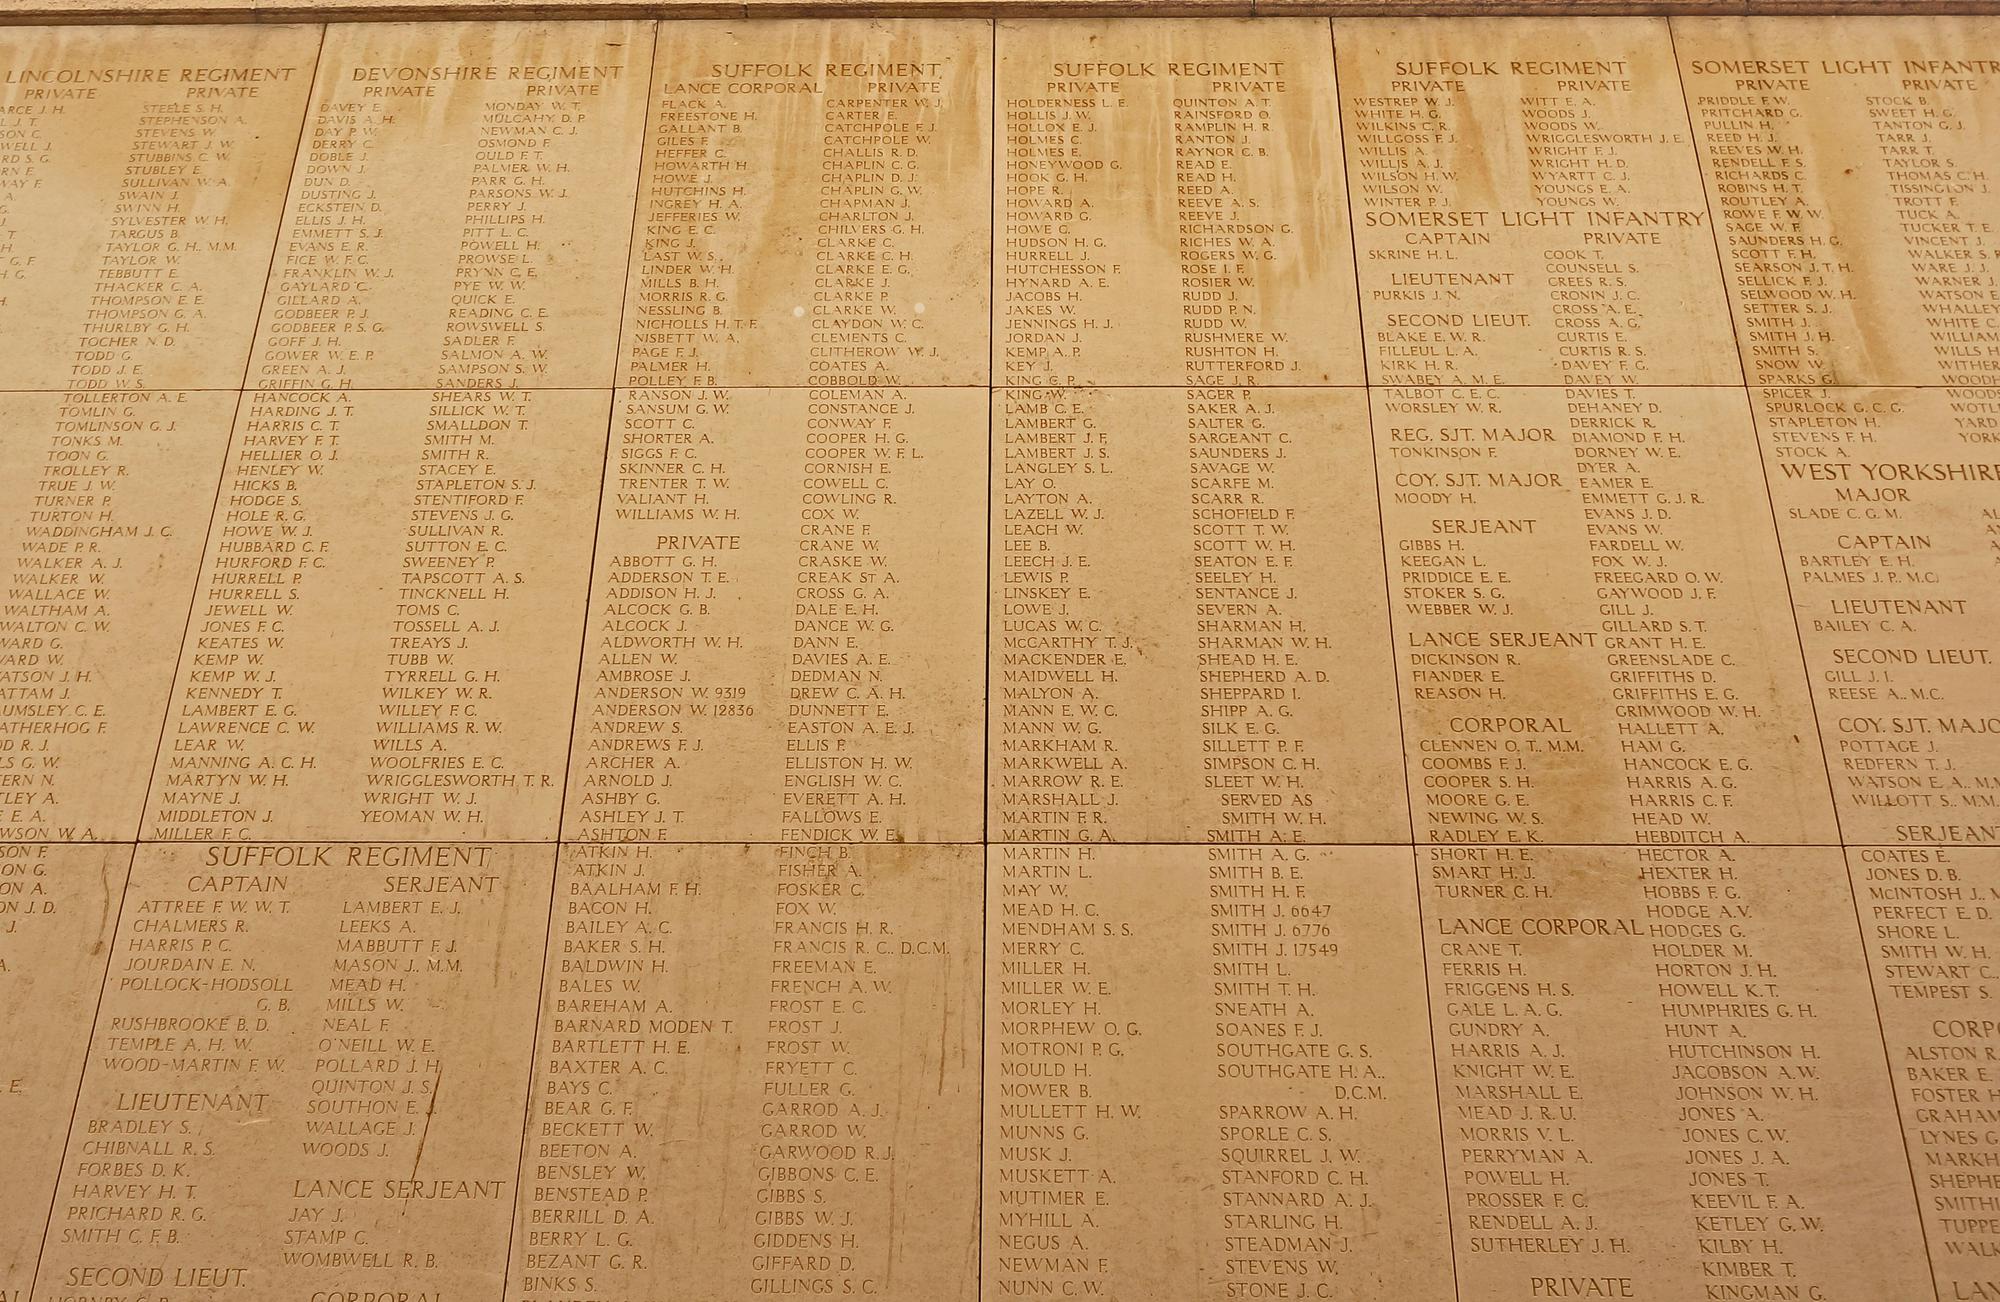 LINCOLNSHIRE REGIMENT
PRIVATE
ARCE J. H.
L J. T.
SON C.
WELL J.
RD S. G.
RN F.
WAY F.
A.
G.
J.
T.
H.
G. F.
H. G.
H.
PRIVATE
STEELE S. H.
STEPHENSON A.
STEVENS W.
STEWART J. W.
STUBBINS C. W.
STUBLEY E.
SULLIVAN W. A.
SWAIN J.
SWINN H.
SYLVESTER W. H.
TARGUS B.
TAYLOR G. H., M.M.
TAYLOR W.
TEBBUTT E.
THACKER C. A.
THOMPSON E. E.
THOMPSON G. A.
THURLBY G. H.
TOCHER N. D.
TODD G.
TODD J. E.
TODD W. S.
TOLLERTON A. E.
TOMLIN G.
TOMLINSON G. J.
TONKS M.
TOON G.
TROLLEY R.
TRUE J. W.
TURNER P.
TURTON H.
WADDINGHAM J. C.
WADE P. R.
WALKER A. J.
WALKER W.
WALLACE W.
WALTHAM A.
WALTON C. W.
WARD G.
WARD W.
WATSON J. H.
ATTAM J.
AUMSLEY C. E.
EATHERHOG F.
D R. J.
LS G. W.
TERN N.
TLEY A.
E E. A.
WSON W. A.
SON F.
ON G.
ON A.
ON J. D.
J.
A.
E.
DEVONSHIRE REGIMENT
PRIVATE
DAVEY E.
DAVIS A. H.
DAY P. W.
DERRY C.
DOBLE J.
DOWN J.
DUN D.
DUSTING J.
ECKSTEIN D.
ELLIS J. H.
EMMETT S. J.
EVANS E. R.
FICE W. F. C.
FRANKLIN W. J.
GAYLARD C.
GILLARD A.
GODBEER P. J.
GODBEER P. S. G.
GOFF J. H.
GOWER W. E. P.
GREEN A. J.
GRIFFIN G. H.
HANCOCK A.
HARDING J. T.
HARRIS C. T.
HARVEY F. T.
HELLIER O. J.
HENLEY W.
HICKS B.
HODGE S.
HOLE R. G.
HOWE W. J.
HUBBARD C. F.
HURFORD F. C.
HURRELL P.
HURRELL S.
JEWELL W.
JONES F. C.
KEATES W.
KEMP W.
KEMP W. J.
KENNEDY T.
LAMBERT E. G.
LAWRENCE C. W.
LEAR W.
MANNING A. C. H.
MARTYN W. H.
MAYNE J.
MIDDLETON J.
MILLER F. C.
PRIVATE
MONDAY W. T.
MULCAHY D. P.
NEWMAN C. J.
OSMOND F.
OULD F. T.
PALMER W. H.
PARR G. H.
PARSONS W. J.
PERRY J.
PHILLIPS H.
PITT L. C.
POWELL H.
PROWSE L.
PRYNN C. E.
PYE W. W.
QUICK E.
READING C. E.
ROWSWELL S.
SADLER F.
SALMON A. W.
SAMPSON S. W.
SANDERS J.
SHEARS W. T.
SILLICK W. T.
SMALLDON T.
SMITH M.
SMITH R.
STACEY E.
STAPLETON S. J.
STENTIFORD F.
STEVENS J. G.
SULLIVAN R.
SUTTON E. C.
SWEENEY P.
TAPSCOTT A. S.
TINCKNELL H.
TOMS C.
TOSSELL A. J.
TREAYS J.
TUBB W.
TYRRELL G. H.
WILKEY W. R.
WILLEY F. C.
WILLIAMS R. W.
WILLS A.
WOOLFRIES E. C.
WRIGGLESWORTH T. R.
WRIGHT W. J.
YEOMAN W. H.
SUFFOLK REGIMENT
CAPTAIN
ATTREE F. W. W. T.
CHALMERS R.
HARRIS P. C.
JOURDAIN E. N.
POLLOCK-HODSOLL
G. B.
RUSHBROOKE B. D.
TEMPLE A. H. W.
WOOD-MARTIN F. W.
LIEUTENANT
BRADLEY S.
CHIBNALL R. S.
FORBES D. K.
HARVEY H. T.
PRICHARD R. G.
SMITH C. F. B.
SECOND LIEUT.
HORNBY
SERJEANT
LAMBERT E. J.
LEEKS A.
MABBUTT F. J.
MASON J., M.M.
MEAD H.
MILLS W.
NEAL F.
O'NEILL W. E.
POLLARD J. H.
QUINTON J. S.
SOUTHON E. J.
WALLAGE J.
WOODS J.
LANCE SERJEANT
JAY J.
STAMP C.
WOMBWELL R. B.
CORPORAL
SUFFOLK REGIMENT
LANCE CORPORAL
FLACK A.
FREESTONE H.
GALLANT B.
GILES F.
HEFFER C.
HOWARTH H.
HOWE J.
HUTCHINS H.
INGREY H. A.
JEFFERIES W.
KING E. C.
KING J.
LAST W. S.
LINDER W. H.
MILLS B. H.
MORRIS R. G.
NESSLING B.
NICHOLLS H. T. F.
NISBETT W. A.
PAGE F. J.
PALMER H.
POLLEY F. B.
RANSON J. W.
SANSUM G. W.
SCOTT C.
SHORTER A.
SIGGS F. C.
SKINNER C. H.
TRENTER T. W.
VALIANT H.
WILLIAMS W. H.
PRIVATE
ABBOTT G. H.
ADDERSON T. E.
ADDISON H. J.
ALCOCK G. B.
ALCOCK J.
ALDWORTH W. H.
ALLEN W.
AMBROSE J.
ANDERSON W. 9319
ANDERSON W. 12836
ANDREW S.
ANDREWS F. J.
ARCHER A.
ARNOLD J.
ASHBY G.
ASHLEY J. T.
ASHTON F.
ATKIN H.
ATKIN J.
BAALHAM F. H.
BACON H.
BAILEY A. C.
BAKER S. H.
BALDWIN H.
BALES W.
BAREHAM A.
BARNARD MODEN T.
BARTLETT H. E.
BAXTER A. C.
BAYS C.
BEAR G. F.
BECKETT W.
BEETON A.
BENSLEY W.
BENSTEAD P.
BERRILL D. A.
BERRY L. G.
BEZANT G. R.
BINKS S.
PRIVATE
CARPENTER W. J.
CARTER E.
CATCHPOLE F. J.
CATCHPOLE W.
CHALLIS R. D.
CHAPLIN C. G.
CHAPLIN D. J.
CHAPLIN G. W.
CHAPMAN J.
CHARLTON J.
CHILVERS G. H.
CLARKE C.
CLARKE C. H.
CLARKE E. G.
CLARKE J.
CLARKE P.
CLARKE W.
CLAYDON W. C.
CLEMENTS C.
CLITHEROW W. J.
COATES A.
COBBOLD W.
COLEMAN A.
CONSTANCE J.
CONWAY F.
COOPER H. G.
COOPER W. F. L.
CORNISH E.
COWELL C.
COWLING R.
COX W.
CRANE F.
CRANE W.
CRASKE W.
CREAK ST A.
CROSS G. A.
DALE E. H.
DANCE W. G.
DANN E.
DAVIES A. E.
DEDMAN N.
DREW C. A. H.
DUNNETT E.
EASTON A. E. J.
ELLIS F.
ELLISTON H. W.
ENGLISH W. C.
EVERETT A. H.
FALLOWS E.
FENDICK W. E.
FINCH B.
FISHER A.
FOSKER C.
FOX W.
FRANCIS H. R.
FRANCIS R. C., D.C.M.
FREEMAN E.
FRENCH A. W.
FROST E. C.
FROST J.
FROST W.
FRYETT C.
FULLER G.
GARROD A. J.
GARROD W.
GARWOOD R. J.
GIBBONS C. E.
GIBBS S.
GIBBS W. J.
GIDDENS H.
GIFFARD D.
GILLINGS S. C.
SUFFOLK REGIMENT
PRIVATE
HOLDERNESS L. E.
HOLLIS J. W.
HOLLOX E. J.
HOLMES C.
HOLMES E.
HONEYWOOD G.
HOOK G. H.
HOPE R.
HOWARD A.
HOWARD G.
HOWE C.
HUDSON H. G.
HURRELL J.
HUTCHESSON F.
HYNARD A. E.
JACOBS H.
JAKES W.
JENNINGS H. J.
JORDAN J.
KEMP A. P.
KEY J.
KING C. P.
KING W.
LAMB C. E.
LAMBERT G.
LAMBERT J. F.
LAMBERT J. S.
LANGLEY S. L.
LAY O.
LAYTON A.
LAZELL W. J.
LEACH W.
LEE B.
LEECH J. E.
LEWIS P.
LINSKEY E.
LOWE J.
LUCAS W. C.
McCARTHY T. J.
MACKENDER E.
MAIDWELL H.
MALYON A.
MANN E. W. C.
MANN W. G.
MARKHAM R.
MARKWELL A.
MARROW R. E.
MARSHALL J.
MARTIN F. R.
MARTIN G. A.
MARTIN H.
MARTIN L.
MAY W.
MEAD H. C.
MENDHAM S. S.
MERRY C.
MILLER H.
MILLER W. E.
MORLEY H.
MORPHEW O. G.
MOTRONI P. G.
MOULD H.
MOWER B.
MULLETT H. W.
MUNNS G.
MUSK J.
MUSKETT A.
MUTIMER E.
MYHILL A.
NEGUS A.
NEWMAN F.
NUNN C. W.
PRIVATE
QUINTON A. T.
RAINSFORD O.
RAMPLIN H. R.
RANTON J.
RAYNOR C. B.
READ E.
READ H.
REED A.
REEVE A. S.
REEVE J.
RICHARDSON G.
RICHES W. A.
ROGERS W. G.
ROSE I. F.
ROSIER W.
RUDD J.
RUDD P. N.
RUDD W.
RUSHMERE W.
RUSHTON H.
RUTTERFORD J.
SAGE J. R.
SAGER P.
SAKER A. J.
SALTER G.
SARGEANT C.
SAUNDERS J.
SAVAGE W.
SCARFE M.
SCARR R.
SCHOFIELD F.
SCOTT T. W.
SCOTT W. H.
SEATON E. F.
SEELEY H.
SENTANCE J.
SEVERN A.
SHARMAN H.
SHARMAN W. H.
SHEAD H. E.
SHEPHERD A. D.
SHEPPARD I.
SHIPP A. G.
SILK E. G.
SILLETT P. F.
SIMPSON C. H.
SLEET W. H.
SERVED AS
SMITH W. H.
SMITH A. E.
SMITH A. G.
SMITH B. E.
SMITH H. F.
SMITH J. 6647
SMITH J. 6776
SMITH J. 17549
SMITH L.
SMITH T. H.
SNEATH A.
SOANES F. J.
SOUTHGATE G. S.
SOUTHGATE H. A.,
D.C.M.
SPARROW A. H.
SPORLE C. S.
SQUIRREL J. W.
STANFORD C. H.
STANNARD A. J.
STARLING H.
STEADMAN J.
STEVENS W.
STONE J. C.
SUFFOLK REGIMENT
PRIVATE
WESTREP W. J.
WHITE H. G.
WILKINS C. R.
WILLGOSS F. J.
WILLIS A.
WILLIS A. J.
WILSON H. W.
WILSON W.
WINTER P. J.
PRIVATE
WITT E. A.
WOODS J.
WOODS W.
WRIGGLESWORTH J. E.
WRIGHT F. J.
WRIGHT H. D.
WYARTT C. J.
YOUNGS E. A.
YOUNGS W.
SOMERSET LIGHT INFANTRY
CAPTAIN
SKRINE H. L.
LIEUTENANT
PURKIS J. N.
SECOND LIEUT.
BLAKE E. W. R.
FILLEUL L. A.
KIRK H. R.
SWABEY A. M. E.
TALBOT C. E. C.
WORSLEY W. R.
REG. SJT. MAJOR
TONKINSON F.
COY. SJT. MAJOR
MOODY H.
SERJEANT
GIBBS H.
KEEGAN L.
PRIDDICE E. E.
STOKER S. G.
WEBBER W. J.
LANCE SERJEANT
DICKINSON R.
FIANDER E.
REASON H.
CORPORAL
CLENNEN O. T., M.M.
COOMBS F. J.
COOPER S. H.
MOORE G. E.
NEWING W. S.
RADLEY E. K.
SHORT H. E.
SMART H. J.
TURNER C. H.
LANCE CORPORAL
CRANE T.
FERRIS H.
FRIGGENS H. S.
GALE L. A. G.
GUNDRY A.
HARRIS A. J.
KNIGHT W. E.
MARSHALL E.
MEAD J. R. U.
MORRIS V. L.
PERRYMAN A.
POWELL H.
PROSSER F. C.
RENDELL A. J.
SUTHERLEY J. H.
PRIVATE
PRIVATE
COOK T.
COUNSELL S.
CREES R. S.
CRONIN J. C.
CROSS A. E.
CROSS A. G.
CURTIS E.
CURTIS R. S.
DAVEY F. G.
DAVEY W.
DAVIES T.
DEHANEY D.
DERRICK R.
DIAMOND F. H.
DORNEY W. E.
DYER A.
EAMER E.
EMMETT G. J. R.
EVANS J. D.
EVANS W.
FARDELL W.
FOX W. J.
FREEGARD O. W.
GAYWOOD J. F.
GILL J.
GILLARD S. T.
GRANT H. E.
GREENSLADE C.
GRIFFITHS D.
GRIFFITHS E. G.
GRIMWOOD W. H.
HALLETT A.
HAM G.
HANCOCK E. G.
HARRIS A. G.
HARRIS C. F.
HEAD W.
HEBDITCH A.
HECTOR A.
HEXTER H.
HOBBS F. G.
HODGE A. V.
HODGES G.
HOLDER M.
HORTON J. H.
HOWELL K. T.
HUMPHRIES G. H.
HUNT A.
HUTCHINSON H.
JACOBSON A. W.
JOHNSON W. H.
JONES A.
JONES C. W.
JONES J. A.
JONES T.
KEEVIL F. A.
KETLEY G. W.
KILBY H.
KIMBER T.
KINGMAN G.
SOMERSET LIGHT INFANTR
PRIVATE
PRIDDLE F. W.
PRITCHARD G.
PULLIN H.
REED H. J.
REEVES W. H.
RENDELL F. S.
RICHARDS C.
ROBINS H. T.
ROUTLEY A.
ROWE F. W. W.
SAGE W. F.
SAUNDERS H. G.
SCOTT F. H.
SEARSON J. T. H.
SELLICK F. J.
SELWOOD W. H.
SETTER S. J.
SMITH J.
SMITH J. H.
SMITH S.
SNOW W.
SPARKS G.
SPICER J.
SPURLOCK G. C. G.
STAPLETON H.
STEVENS F. H.
STOCK A.
PRIVATE
STOCK B.
SWEET H. G.
TANTON G. J.
TARR J.
TARR T.
TAYLOR S.
THOMAS C. H.
TISSINGTON J.
TROTT F.
TUCK A.
TUCKER T. E.
VINCENT J.
WALKER S.
WARE J. J.
WARNER J.
WATSON E.
WHALLEY
WHITE C.
WILLIAM
WILLS H
WITHER
WOODH
WOODS
WOTL
YARD
YORK
WEST YORKSHIRE
MAJOR
SLADE C. G. M.
CAPTAIN
BARTLEY E. H.
PALMES J. P., M.C.
LIEUTENANT
BAILEY C. A.
SECOND LIEUT.
GILL J. I.
REESE A., M.C.
COY. SJT. MAJO
POTTAGE J.
REDFERN T. J.
WATSON E. A., M.M
WILLOTT S., M.M.
SERJEANT
COATES E.
JONES D. B.
McINTOSH J., M
PERFECT E. D.
SHORE L.
SMITH W. H.
STEWART C.
TEMPEST S.
CORPO
ALSTON R.
BAKER E.
FOSTER H
GRAHAM
LYNES G
MARKH
SHEPHE
SMITHI
TUPPE
WALK
LAN